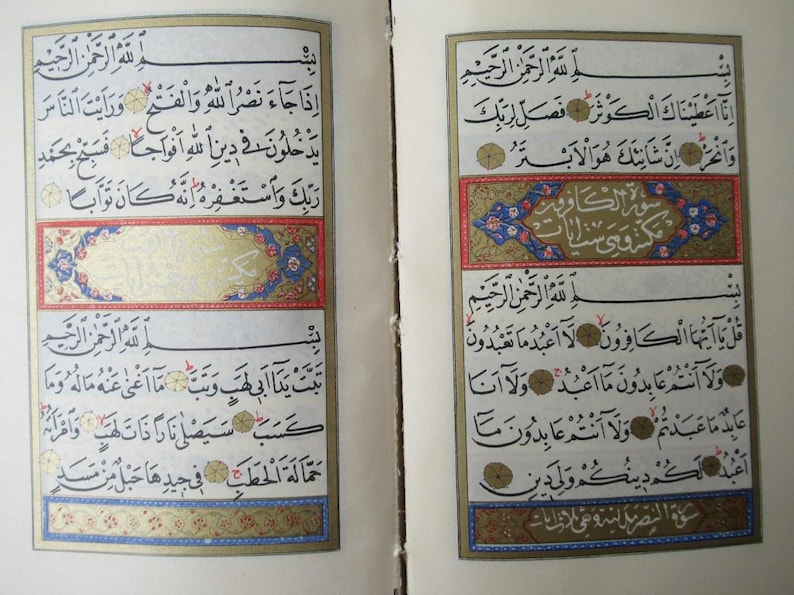 بِسْمِ اللّٰهِ الرَّحْمٰنِ الرَّحٖيمِ
اِنَّٓا اَعْطَيْنَاكَ الْكَوْثَرَۜ فَصَلِّ لِرَبِّكَ
وَانْحَرْۜ اِنَّ شَانِئَكَ هُوَ الْاَبْتَرُ
سورة الكافرون
مكية وهى ست ايات
بِسْمِ اللّٰهِ الرَّحْمٰنِ الرَّحٖيمِ
قُلْ يَٓا اَيُّهَا الْكَافِرُونَۙ لَٓا اَعْبُدُ مَا تَعْبُدُونَۙ
وَلَٓا اَنْتُمْ عَابِدُونَ مَٓا اَعْبُدُۚ وَلَٓا اَنَا۬
عَابِدٌ مَا عَبَدْتُمْۙ وَلَٓا اَنْتُمْ عَابِدُونَ مَٓا
اَعْبُدُۜ لَكُمْ دٖينُكُمْ وَلِيَ دٖينِ
سورة النصر مدنية وهى ثلاث ايات
بِسْمِ اللّٰهِ الرَّحْمٰنِ الرَّحٖيمِ
اِذَا جَٓاءَ نَصْرُ اللّٰهِ وَالْفَتْحُۙ وَرَاَيْتَ النَّاسَ
يَدْخُلُونَ فٖي دٖينِ اللّٰهِ اَفْوَاجًاۙ فَسَبِّحْ بِحَمْدِ
رَبِّكَ وَاسْتَغْفِرْهُۜ اِنَّهُ كَانَ تَوَّابًا
بِسْمِ اللّٰهِ الرَّحْمٰنِ الرَّحٖيمِ
تَبَّتْ يَدَٓا اَبٖي لَهَبٍ وَتَبَّۜ مَٓا اَغْنٰى عَنْهُ مَالُهُ وَمَا
كَسَبَۜ سَيَصْلٰى نَارًا ذَاتَ لَهَبٍۙ وَامْرَاَتُهُۜ
حَمَّالَةَ الْحَطَبِۚ فٖي جٖيدِهَا حَبْلٌ مِنْ مَسَدٍ